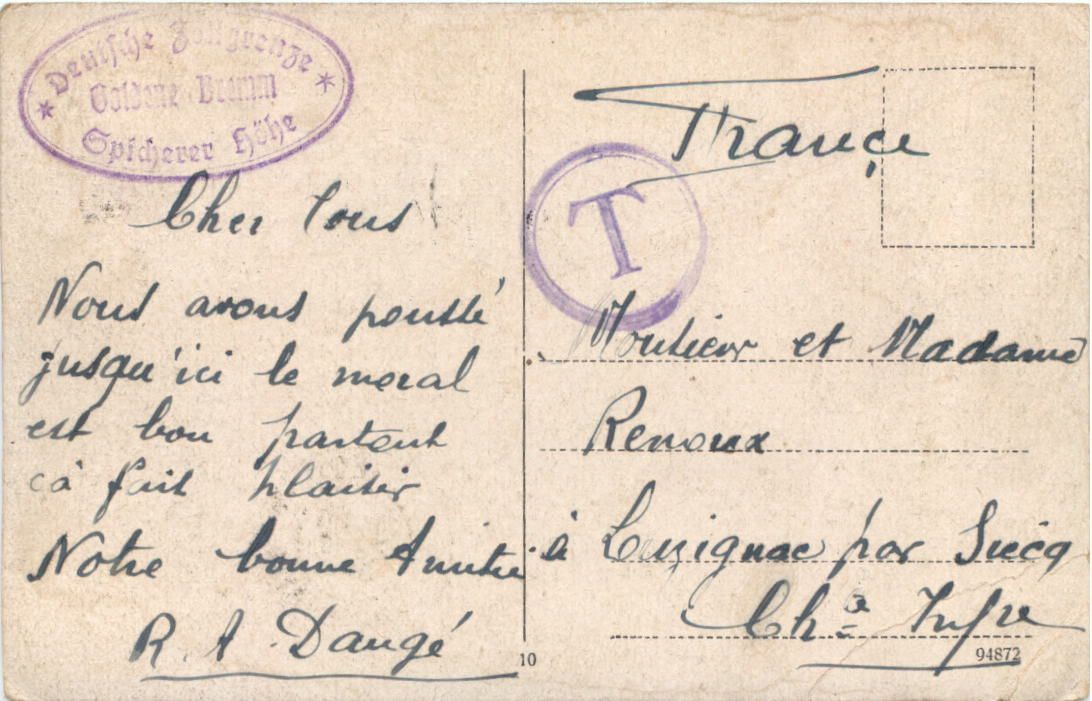 * Deutsche Zollgrenze *
Goldene Bremm
Spicherer Höhe
Cher Tous
Nous avons poussé
jusqu'ici le moral
est bon partout
cà fait plaisir
Notre bonne Amitié
R. A. Daugé
France
T
Monsieur et Madame
Renoux
à Cuzignac par Siecq
Chte Infre
10
94872